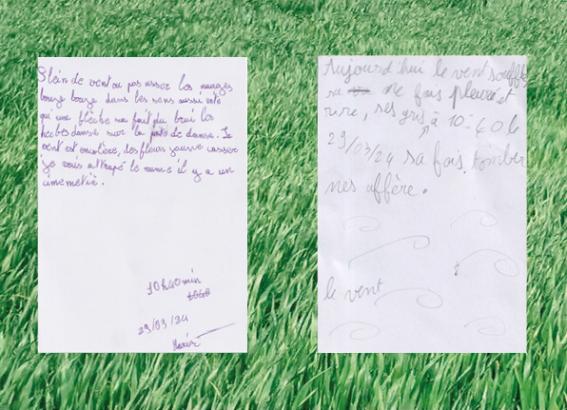 Plein de vent ou pas assez les nuages
bouge bouge dans les sens aussi vite
qu'une flèche va fait du bruit les
herbes danse sur la piste de danse. Le
vent est
les fleurs jaune
je vais attrapé le il y a un
10h40min
29/03/24
Aujourd'hui le vent souffle
sa me fais pleuré et
rire, ses gris à 10:40 le
29/03/24 sa fais tomber
mes affère.
le vent